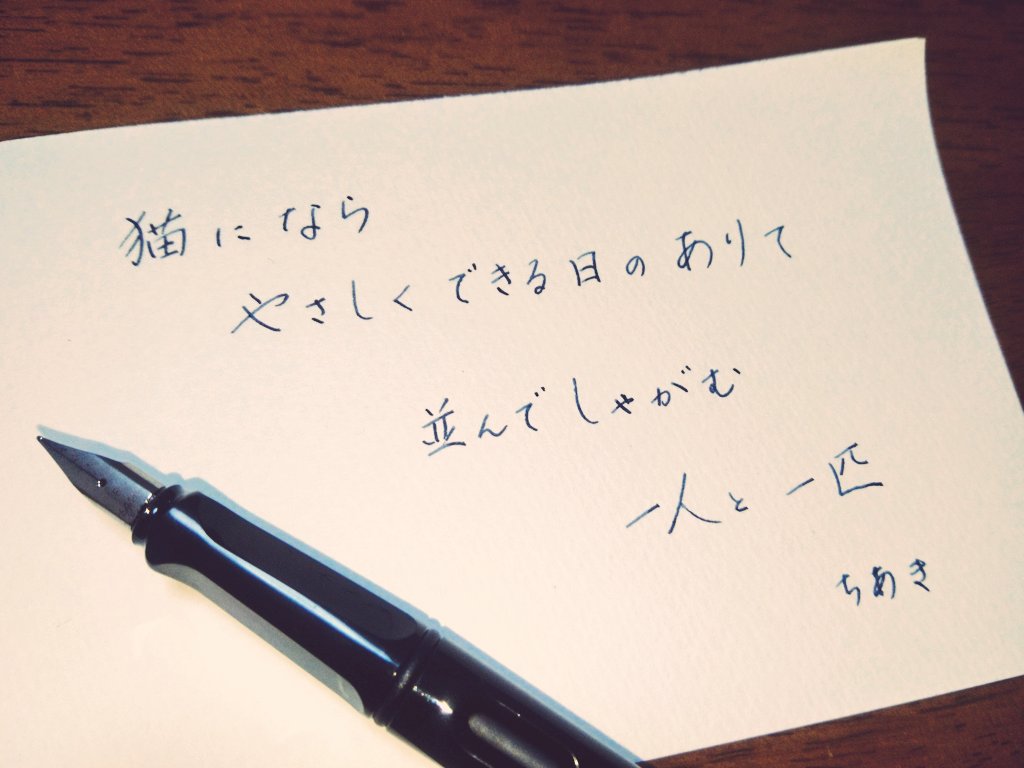 猫になら
やさしくできる日のありて
並んでしゃがむ
一人と一匹
ちあき